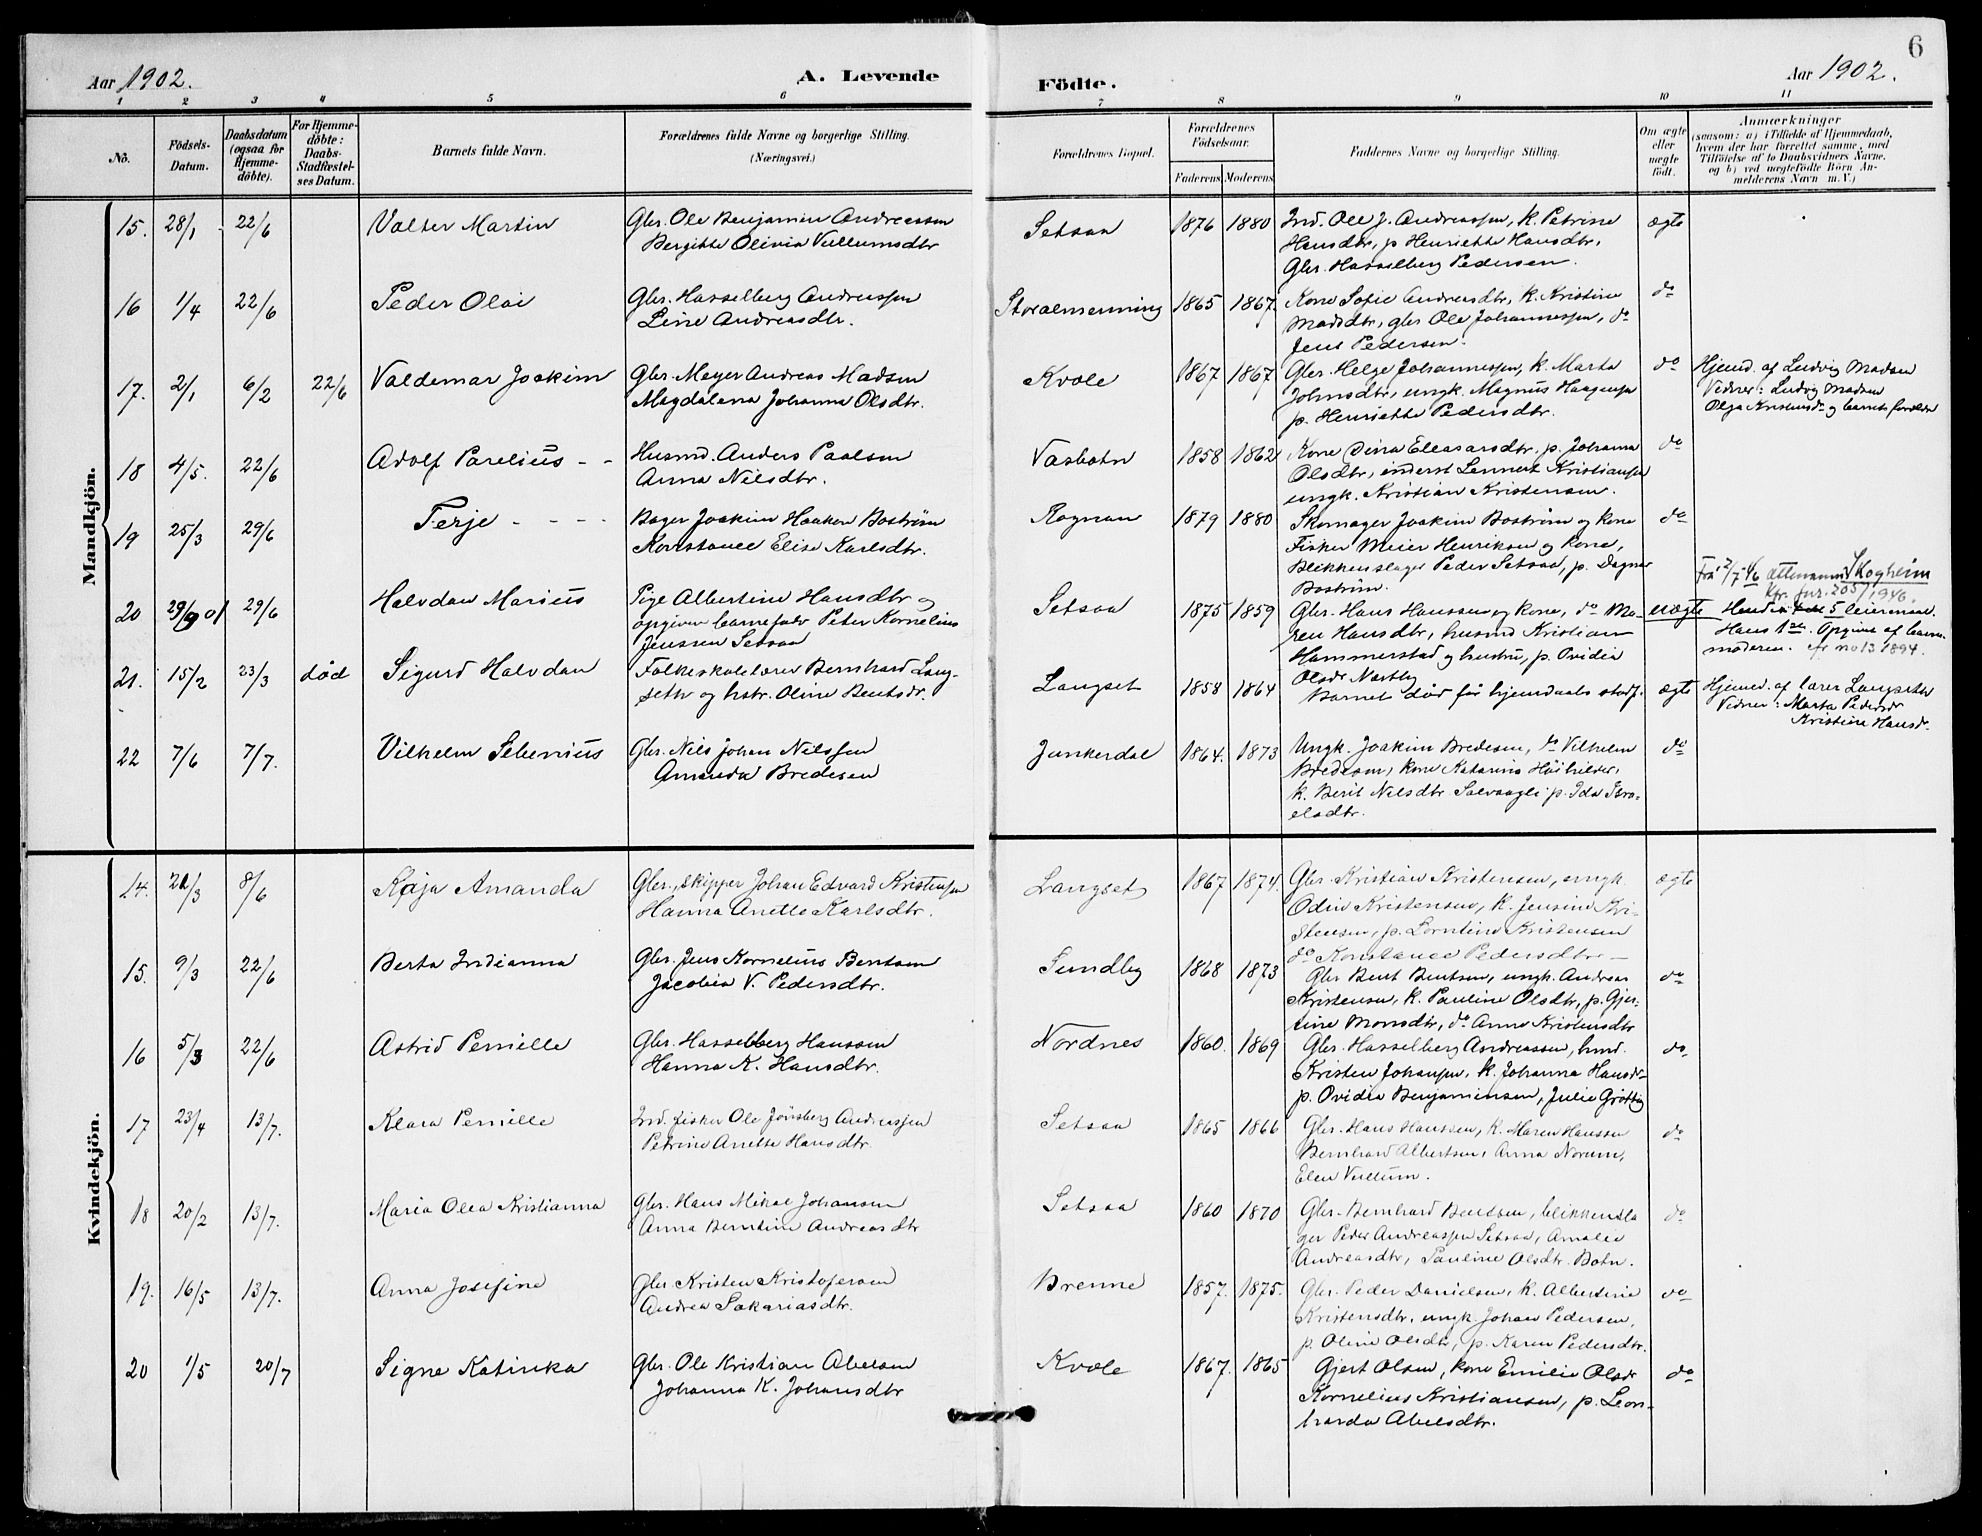 6
Aar 1902.
A. Levende
Födte.
Aar 1902.
1 2 3 4 5 6 7 8 9 10 11
No.
Födsels-
Datum.
Daabsdatum
(ogsaa for
Hjemme-
döbte).
For Hjemme-
döbte:
Daabs-
Stadfæstel-
ses Datum.
Barnets fulde Navn.
Forældrenes fulde Navne og borgerlige Stilling.
(Næringsvei.)
Forældrenes Bopæl.
Forældrenes
Födselsaar.
Faderens Moderens
Faddernes Navne og borgerlige Stilling.
Om ægte
eller
uægte
födt.
Anmærkninger
(saasom: a) i Tilfælde af Hjemmedaab,
hvem der har forrettet samme, med
Tilföielse af to Daabsvidners Navne,
og b) ved uægtefödte Börn An-
melderens Navn m. V.)
Mandkjön.
15. 28/1 22/6 Valter Martin
Gbr. Ole Benjamin Andreassen
Bergitte Olivia Vullumsdtr
Setsaa 1876 1880
Ind. Ole J. Andreassen, k. Petrine
Hansdtr, p Henriette Hansdtr,
Gbr. Hasselberg Pedersen.
ægte
16 1/4 22/6 Peder Olai
Gbr. Hasselberg Andreassen
Line Andreasdtr.
Storalmenning 1865 1867.
Kone Sofie Andreasdtr, k. Kristine
Madsdtr, gbr Ole Johannessen, do
Jens Pedersen.
do
17. 2/1 6/2 22/6 Valdemar Joakim
Gbr. Meyer Andreas Madsen
Magdalena Johanna Olsdtr.
Kvæle 1867 1867
Gbr. Helge Johannessen, k. Marta
Johnsdtr, ungk. Magnus Haagensen
p. Henriette Pedersdtr.
do
Hjemd. af Ludvig Madsen
Vidner: Ludvig Madsen
Olga Kristensdr og barnets forældre
18 4/5. 22/6 Adolf Parelius - -
Husmd. Anders Paalsen
Anna Nilsdtr.
Vasbotn 1858 1862
Kone Dina Eleasarsdtr. p. Johanna
Olsdtr, inderst Lennert Kristiansen
ungk. Kristian Kristensen.
do
19 25/3 29/6 Terje - - - -
Bager Joakim Haaken Boström
Konstance Elise Karlsdtr.
Rognan 1879 1880
Skomager Joakim Boström og kone
Fisker Meier Henriksen og kone,
Blikkenslager Peder Setsaa, p. Dagmar
Boström.
do
20 29/9 01 29/6 Halvdan Marius
Pige Albertine Hansdtr og
opgiven barnefader Peter Kornelius
Jenssen Setsaa
Setsaa 1875 1859
Gbr. Hans Hanssen og kone, do Ma-
ren Hansdtr, husmd Kristian
Hammerstad og hustru, p. Ovidia
Olsdr Næstby
uægte
Fra 2/7 46 ettenavn Skogheim
Kfr. jnr. 205/1946.
Hendes 5 leiermaal.
Hans 1ste. Opgivet af barne-
moderen. cfr no 13 1894.
21. 15/2 23/3 død Sigurd Halvdan
Folkeskolelærer Bernhard Lang-
seth og hstr. Oline Bentsdr.
Langset 1858 1864
Barnet død før hjemdaabs stadf.
ægte
Hjemd. af lærer Langseth
Vidner: Marta Pedersdr
Kristine Hansdr.
22 7/6 7/7. Vilhelm Sebenius
Gbr. Nils Johan Nilssen
Amanda Bredesen
Junkerdal 1864. 1873
Ungk. Joakim Bredesen, do Vilhelm
Bredesen, kone Katarina Höihilder,
k. Berit Nilsdtr Solvaagli p. Ida Isra-
elsdtr.
do
Kvindekjön.
14. 21/3 8/6 Kaja Amanda
Gbr., skipper Johan Edvard Kristensen
Hanna Anette Karlsdtr.
Langset 1867 1874.
Gbr. Kristian Kristensen, ungk.
Odin Kristensen, k. Jensine Kri-
stensen, p. Lorntine Kristensen
do Konstance Pedersdtr —
ægte
15. 9/3 22/6 Berta Indianna
Gbr. Jens Kornelius Bentsen
Jacobia V. Pedersdtr.
Sundby 1868 1873
Gbr Bent Bentsen, ungk. Andreas
Kristensen, k. Pauline Olsdtr, p. Gjer-
tine Monsdtr, do Anna Kristensdtr
do
16 5/3 22/6 Astrid Pernille
Gbr. Hasselberg Hanssen
Hanna K. Hansdtr.
Nordnes 1860. 1869
Gbr. Hasselberg Andreassen, hmd.
Kristen Johansen, k. Johanna Hansdr-
p. Ovidia Benjaminsen, Julie Gröttig
do.
17 23/4 13/7. Klara Pernille
Ind. fisker Ole Jönsberg Andreassen
Petrine Anette Hansdtr.
Setsaa 1865 1866
Gbr. Hans Hanssen, k. Maren Hanssen
Bernhard Albertsen, Anna Norum,
Elen Vullum.
do
18 20/2 13/7. Maria Olea Kristianna
Gbr. Hans Mikal Johansen
Anna Berntine Andreasdtr
Setsaa 1860 1870
Gbr. Bernhard Bentsen, blikkensla
ger Peder Andreassen Setsaa, Amalie
Andreasdtr, Pauline Olsdtr. Botn.
do
19. 16/5 13/7. Anna Josefine
Gbr Kristen Kristofersen
Andrea Sakariasdtr.
Brenne 1857. 1875.
Gbr. Peder Danielsen, k. Albertine
Kristensdtr, ungk. Johan Pedersen,
p. Oline Olsdtr, p. Karen Pedersdtr.
do
20 1/5 20/7 Signe Katinka
Gbr. Ole Kristian Abelsen
Johanna K. Johansdtr
Kvæle 1867. 1865
Gjert Olsen, kone Emilie Olsdr
Kornelius Kristiansen, p. Leon-
harda Abelsdtr.
do